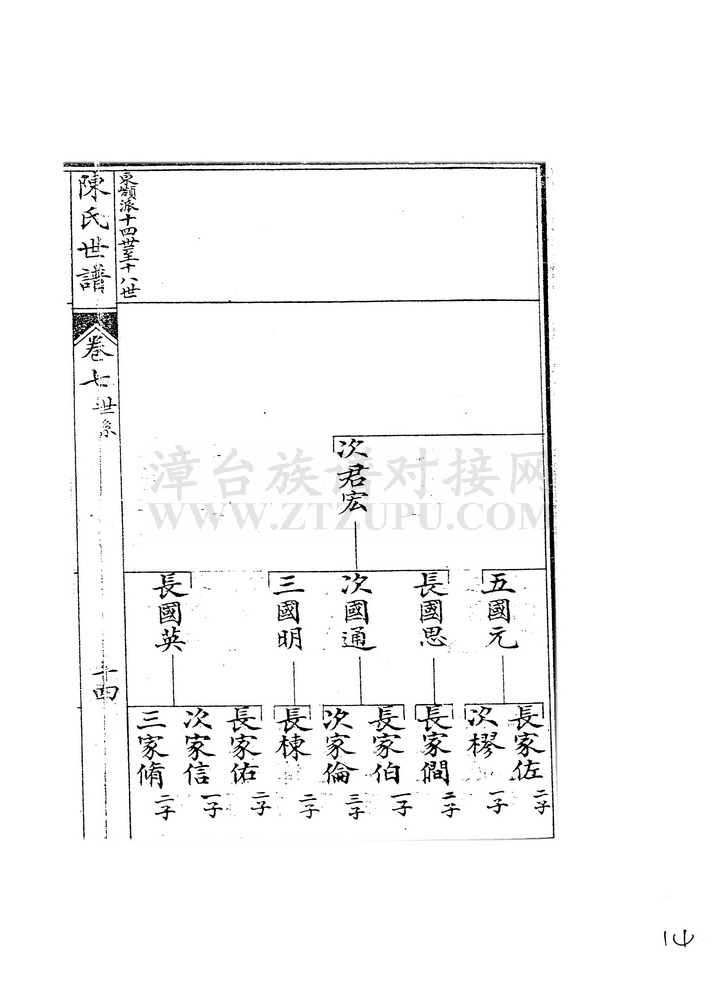 東嶺派十四世至十八世
陳氏世譜
卷七
世系
十四
次君宏
五國元
長國思
次國通
三國明
長國英
長家佐
二子
次樛
一子
長家僩
二子
長家伯
一子
次家倫
三子
長棟
二子
長家佑
二子
次家信
一子
三家脩
二子
漳台族谱对接网
WWW.ZTZUPU.COM
14